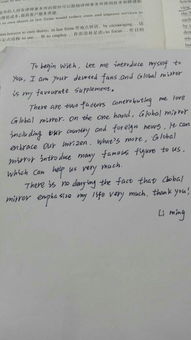 To begin with, Let me introduce myself to
You, I am your devoted fans and Global mirror
is my favourate supplement.
There are two factors contributing me love
Global mirror. On the one hand, Global mirror
including our country and foreign news, it can
enbrace our horizen. What's more, Global
mirror introduce many famous figure to us,
which can help us very much.
There is no denying the fact that Global
mirror emphasise my life very much, thank you!
Li ming